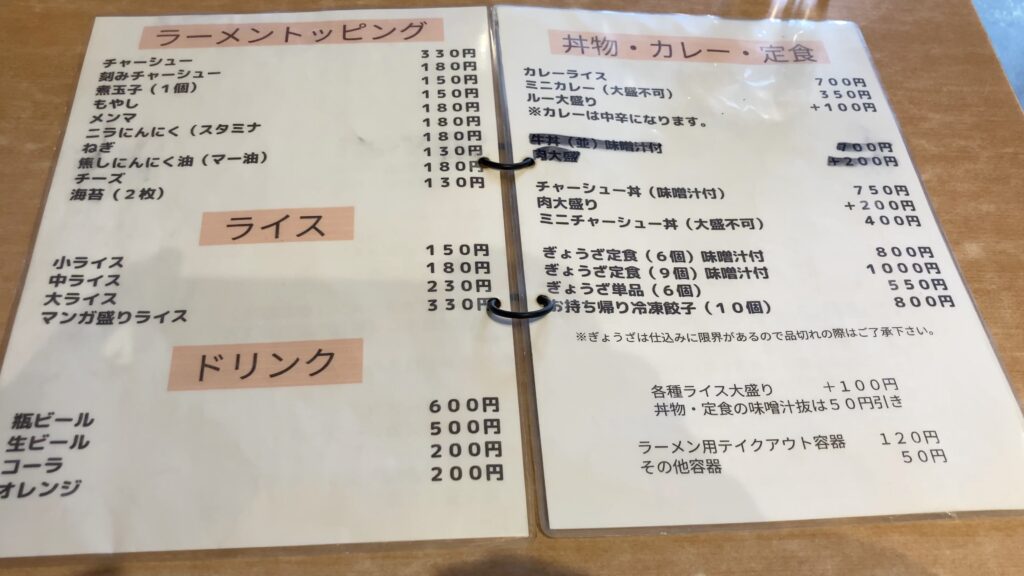 ラーメントッピング
チャーシュー 330円
刻みチャーシュー 180円
煮玉子（1個） 150円
もやし 150円
メンマ 180円
ニラにんにく（スタミナ 180円
ねぎ 180円
焦しにんにく油（マー油） 130円
チーズ 180円
海苔（2枚） 130円
ライス
小ライス 150円
中ライス 180円
大ライス 230円
マンガ盛りライス 330円
ドリンク
瓶ビール 600円
生ビール 500円
コーラ 200円
オレンジ 200円
丼物・カレー・定食
カレーライス 700円
ミニカレー（大盛不可） 350円
ルー大盛り +100円
※カレーは中辛になります。
牛丼（並）味噌汁付 700円
肉大盛 +200円
チャーシュー丼（味噌汁付） 750円
肉大盛り +200円
ミニチャーシュー丼（大盛不可） 400円
ぎょうざ定食（6個）味噌汁付 800円
ぎょうざ定食（9個）味噌汁付 1000円
ぎょうざ単品（6個） 550円
お持ち帰り冷凍餃子（10個） 800円
※ぎょうざは仕込みに限界があるので品切れの際はご了承下さい。
各種ライス大盛り +100円
丼物・定食の味噌汁抜は50円引き
ラーメン用テイクアウト容器 120円
その他容器 50円